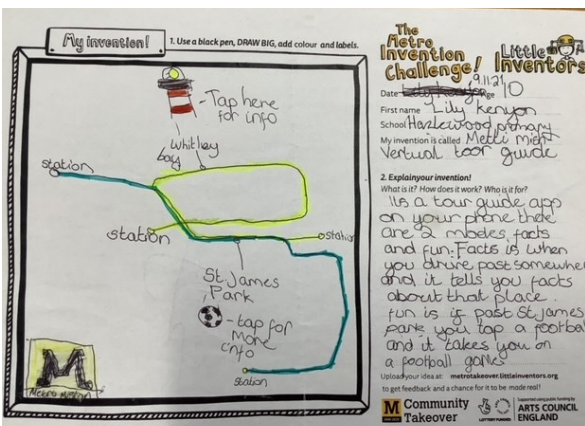 My invention!
1. Use a black pen, DRAW BIG, add colour and labels.
- Tap here
for info
Whitley
bay
station
station
station
St. James
Park
- tap for
more
info
station
M
The
Metro
Invention
Challenge!
Little
Inventors
Date 9.11.21
Age 10
First name Lily Kenyon
School Hazlewood primary
My invention is called
vertual toor guide
2. Explain your invention!
What is it? How does it work? Who is it for?
Its a tour guide app
on your phone there
are 2 modes, facts
and fun. Facts is when
you drive past somewhere
and it tells you facts
about that place.
fun is if past St. James
park you tap a football
and it takes you on
a football game
Upload your idea at metrotakeover.littleinventors.org
to get feedback and a chance for it to be made real!
M Community
Takeover
LOTTERY FUNDED
Supported using public funding by
ARTS COUNCIL
ENGLAND